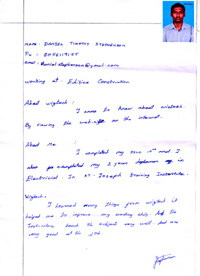 NAME : DANIEL TIMOTHY STEPHENSON
email : daniel.stephenson@gmail.com
working at : Edifice Construction
About wigtech :
I came to know about wigtech.
By seeing the website on the internet.
About Me :
I completed my
also completed my 2 years diploma in
Electrical. In ST. Joseph Training Institute.
Wigtech :
I learned many things from wigtech it
helped me to improve my working skills. And the
Instructors teach the subject very well and are
very good at the job.